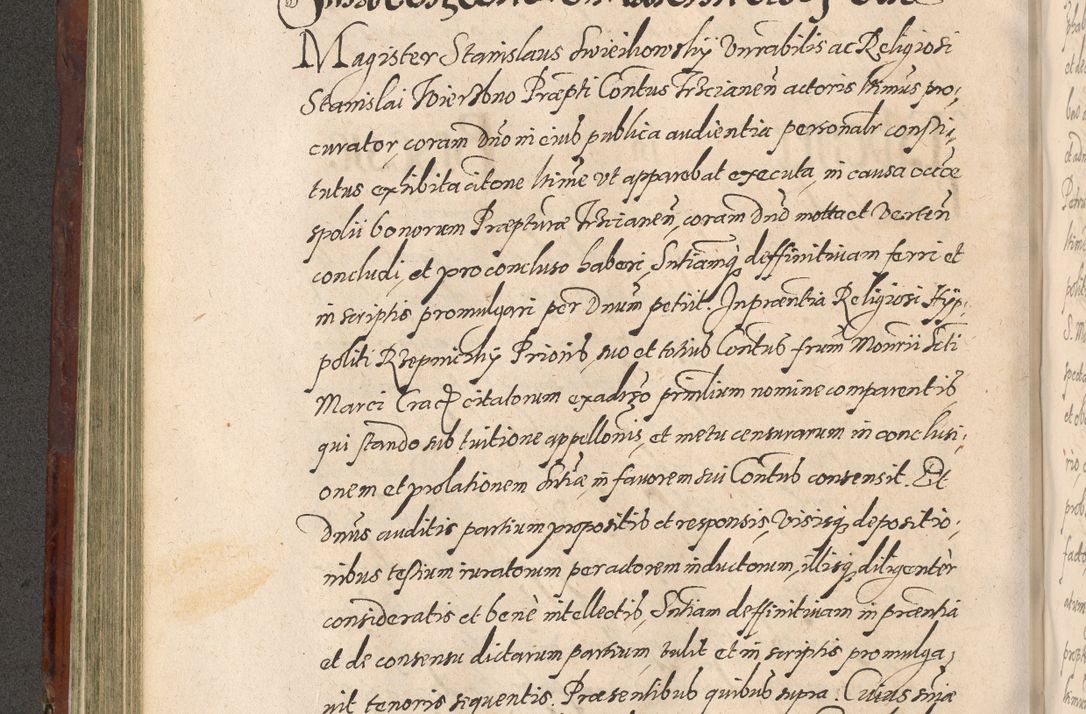 Magister Stanislaus Swieihowskij Vnrabilis ac Religiosi
Stanislai Wierzbno Præpti Contus Trzcianen̄ actoris ltimus pro,
curator, coram dno in eius publica audientia personalr consti,
tutus exhibita citone ltime vt apparebat executa, in causa occōe
spolii bonorum Præpturæ Trzcianen̄, coram Dno mota et verten̄
concludi, et pro concluso haberi, Sntiamq deffinitiuam ferri et
in scriptis promulgari per Dnum petiit. In præntia Religiosi Hyp,
politi Rzepnichij Prioris, suo et totius Contus frum Monrii Scti
Marci Crac citatorum ex adizo prinlium nomine comparentis,
qui stando sub tuitione appellonis, et metu censurarum in conclusi,
onem et prolationem Sntiæ, in fauorem sui Contus consensit. Et
Dnus auditis partium propositis et responsis, visisq depositio,
nibus testium iuratorum per actorem inductorum, illisq diligentèr
consideratis et benè intellectis, Sntiam deffinitiuam in præntia
et de consensu dictarum partium tulit et in scriptis promulga,
uit tenoris sequentis. Præsentibus quibus supra. Cuius sniæ